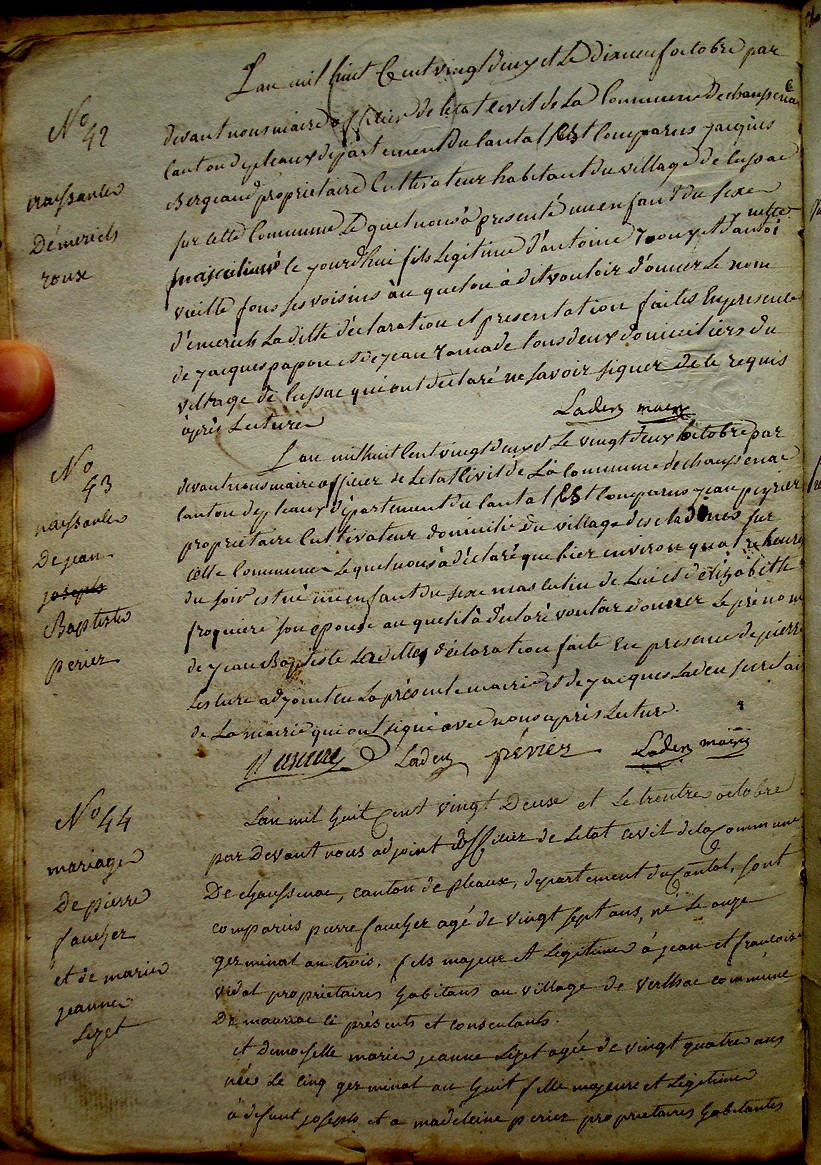 No 42
naissance
D'émerich
roux
L'an mil huit Cent vingt deux et Le dixneuf octobre par
devant nous maire officier de letat civil de La Commune de chaussenac
canton de pleaux département du cantal Est Comparus jacques
Bergeaud propriétaire Cultivateur habitant du village de Cussac
sur cette Commune Le quel nous à presenté un enfant du sexe
masculin né ce jourd'hui fils Legitime d'antoine roux et d'antoinette
vieille fons ses voisins au quel on à dit vouloir donner Le nom
d'émerich La ditte déclaration et presentation faites En presence
de jacques papon et de jean ramade tous deux domiciliers du
village de Cussac qui ont declaré ne savoir signer de ce requis
après Lecture
Laden maire
No 43
naissance
De jean
joseph
Baptiste
perier
L'an mil huit Cent vingt deux et Le vingt deux octobre par
devant nous maire officier de Letat Civil de La Commune de chaussenac
canton de pleaux département du cantal Est Comparus jean perier
propriétaire Cultivateur domicilié du village des sur
cette Commune Le quel nous à déclaré que hier environ quatre heures
du soir est né un enfant du sexe masculin de Lui et d'elizabeth
froquiere son épouse au quel il à déclaré vouloir donner Le prénom
de jean Baptiste La ditte déclaration faite En presence de pierre
Lescure adjoint en La présente mairie et de jacques Laden secretaire
de La mairie qui ont signé avec nous après Lecture.
Laden périer Laden maire
No 44
mariage
De pierre
faucher
et de marie
jeanne
Lizet
L'an mil huit Cent vingt Deuse et Le trentre octobre
par Devant nous adjoint officier de Letat civil de la Commune
De chaussenac, canton de pleaux, département du Cantal, sont
comparus pierre faucher agé de vingt sept ans, né Le onze
germinal an trois, fils majeur et Legitime à jean et francoise
vidal propriétaires habitans au village de Verlhac commune
De mauriac ci présents et consentants.
et Demoselle marie jeanne Lizet agée de vingt quatre ans
née Le cinq germinal an huit fille majeure et Legitime
à défunt joseph et a madeleine perier propriétaires habitantes